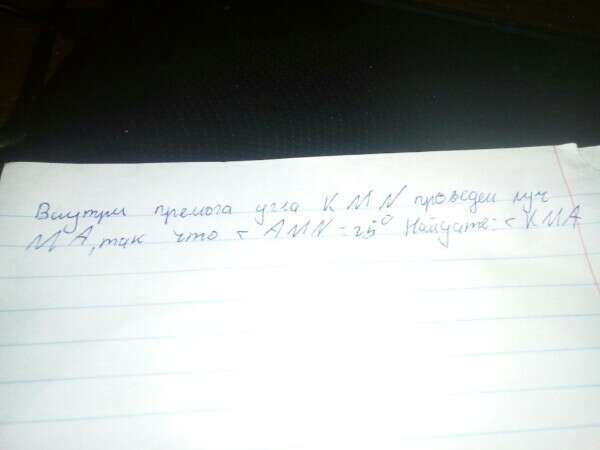 Внутри премога угла KMN проведен луч
MA, так что < AMN = 25° Найдате: < KMA